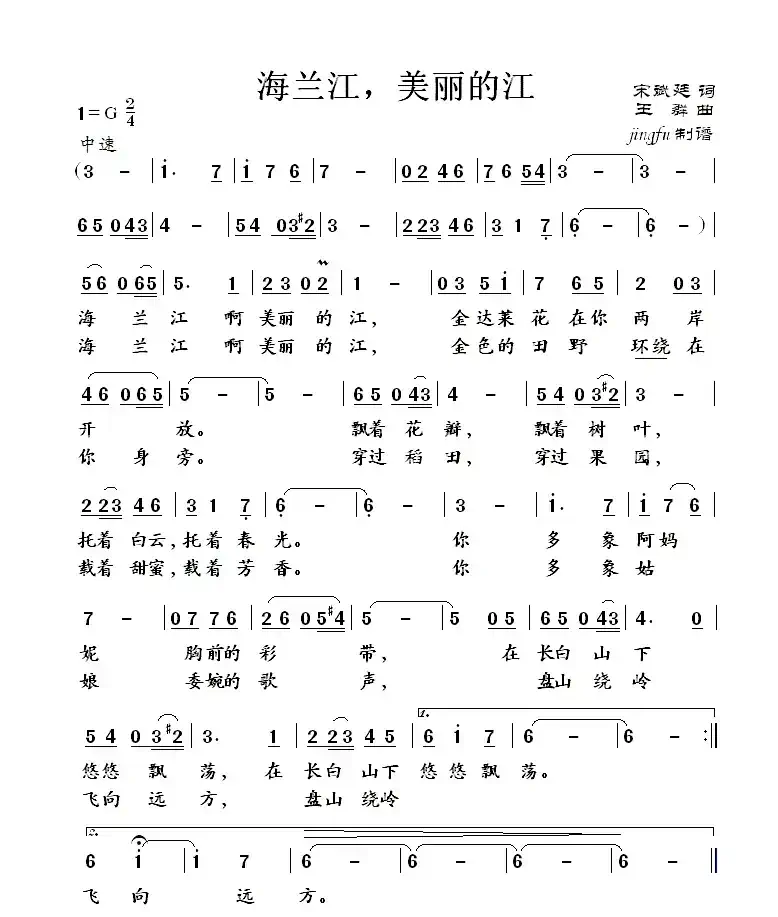 海兰江，美丽的江
宋斌廷 词
王 群 曲
jingfu 制谱
1=G 2/4
中速
(3 - | 1. 7 | 1 7 6 | 7 - | 02 46 | 76 54 | 3 - | 3 - |
65 043 | 4 - | 54 03#2 | 3 - | 223 46 | 3 1 7 | 6 - | 6 - ) |
56 065 | 5. 1 | 23 02 | 1 - | 03 51 | 7 65 | 2 03 |
海 兰 江 啊 美丽 的 江， 金达莱 花 在你 两 岸
海 兰 江 啊 美丽 的 江， 金色的 田 野 环绕 在
46 065 | 5 - | 5 - | 65 043 | 4 - | 54 03#2 | 3 - |
开 放。 飘着 花 瓣， 飘着 树 叶，
你 身 旁。 穿过 稻 田， 穿过 果 园，
223 46 | 3 1 7 | 6 - | 6 - | 3 - | 1. 7 | 1 7 6 |
托着 白云，托着 春 光。 你 多 象 阿妈
载着 甜蜜，载着 芳 香。 你 多 象 姑
7 - | 07 76 | 26 05#4 | 5 - | 5 05 | 65 043 | 4. 0 |
妮 胸前的 彩 带， 在 长白 山 下
娘 委婉的 歌 声， 盘山 绕 岭
1.
54 03#2 | 3. 1 | 223 45 | 6 1 7 | 6 - | 6 - :||
悠悠 飘 荡， 在 长白 山下 悠 悠 飘 荡。
飞向 远 方， 盘山 绕岭
2.
6 1 | 1 7 | 6 - | 6 - | 6 - | 6 - ||
飞 向 远 方。